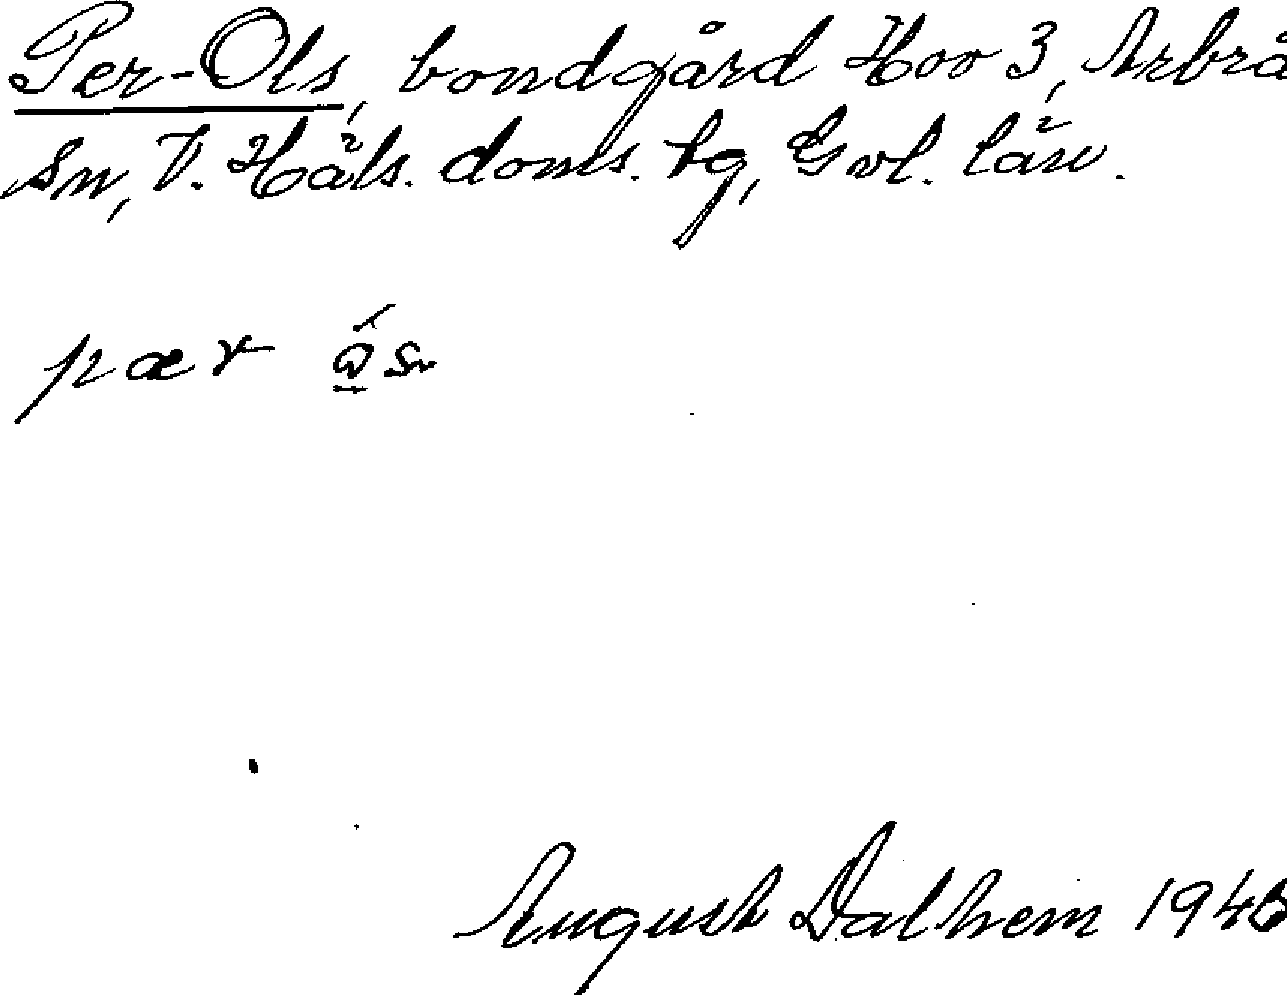 Per-Ols, bondgård Hov 3, Arbrå
sn, V. Häls. doms. tg, Gvl. län.
pær ås
August Dalhem 1946